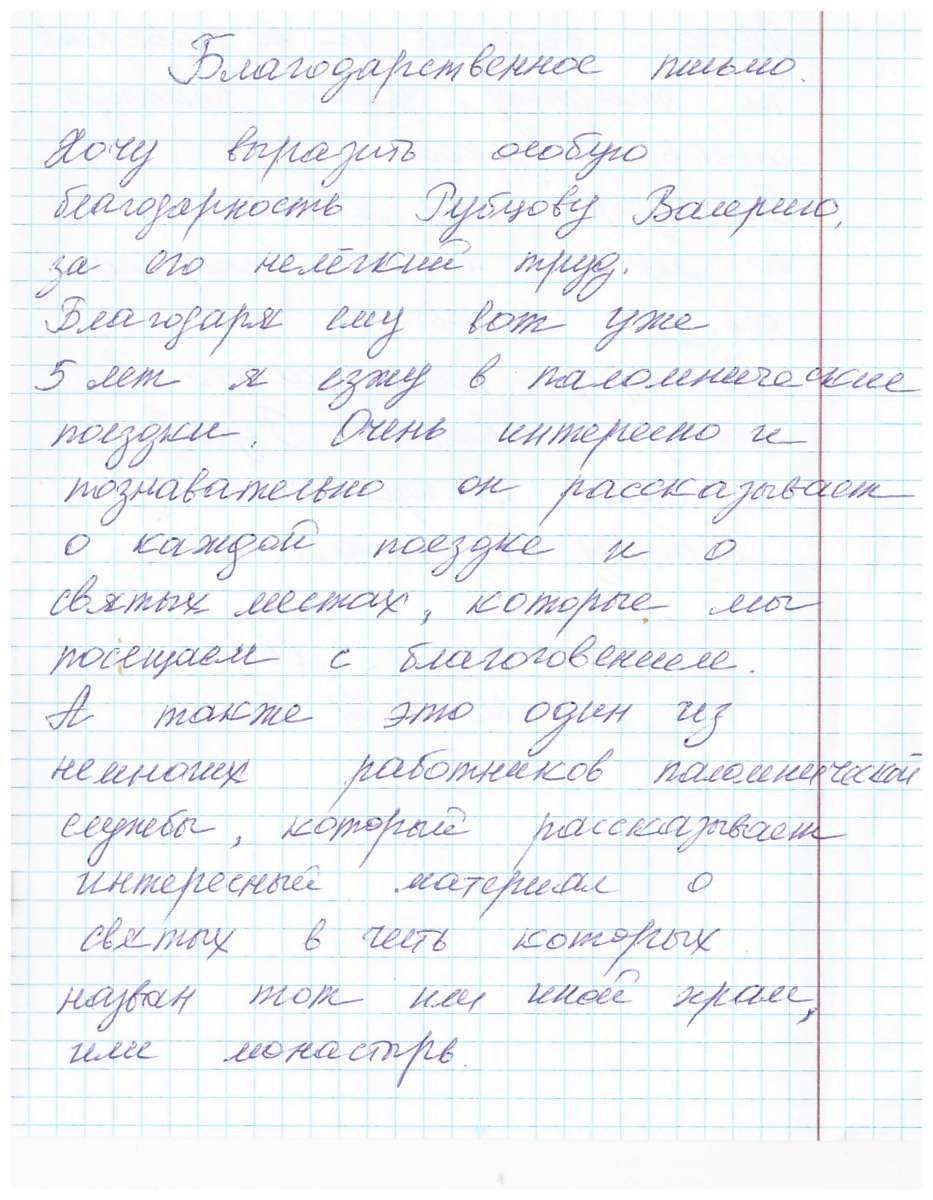 Благодарственное письмо.
Хочу выразить особую
благодарность Рубцову Валерию,
за его нелёгкий труд.
Благодаря ему вот уже
5 лет я езжу в паломнические
поездки. Очень интересно и
познавательно он рассказывает
о каждой поездке и о
святых местах, которые мы
посещаем с благоговением.
А также это один из
немногих работников паломнической
службы, который рассказывает
интересный материал о
святых в честь которых
назван тот или иной храм,
или монастырь.